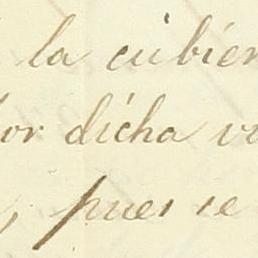 la cubier
or dicha v
, pues se